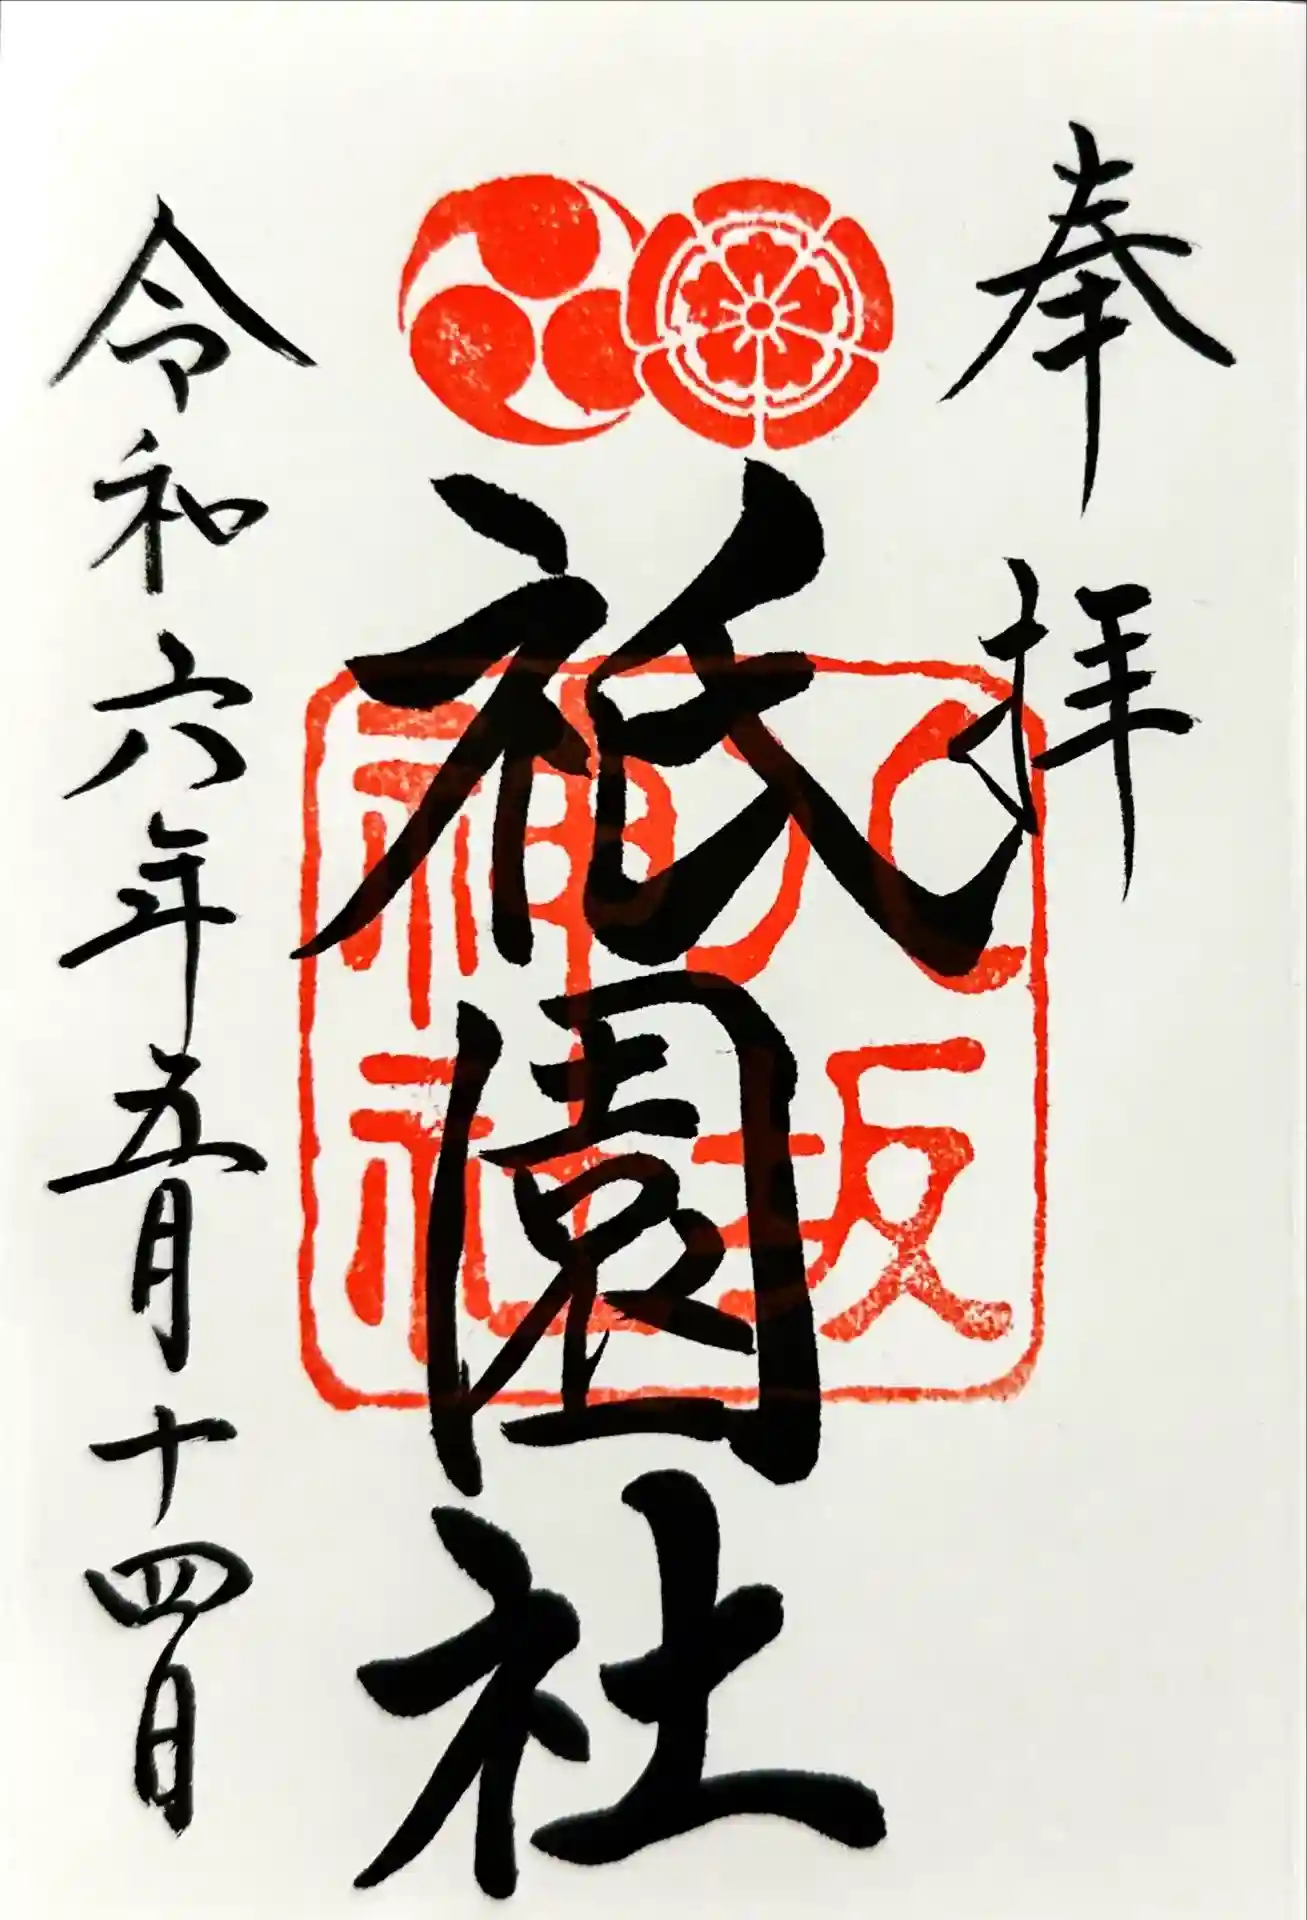 奉拝
祇園社
八坂
神社
令和六年五月十四日